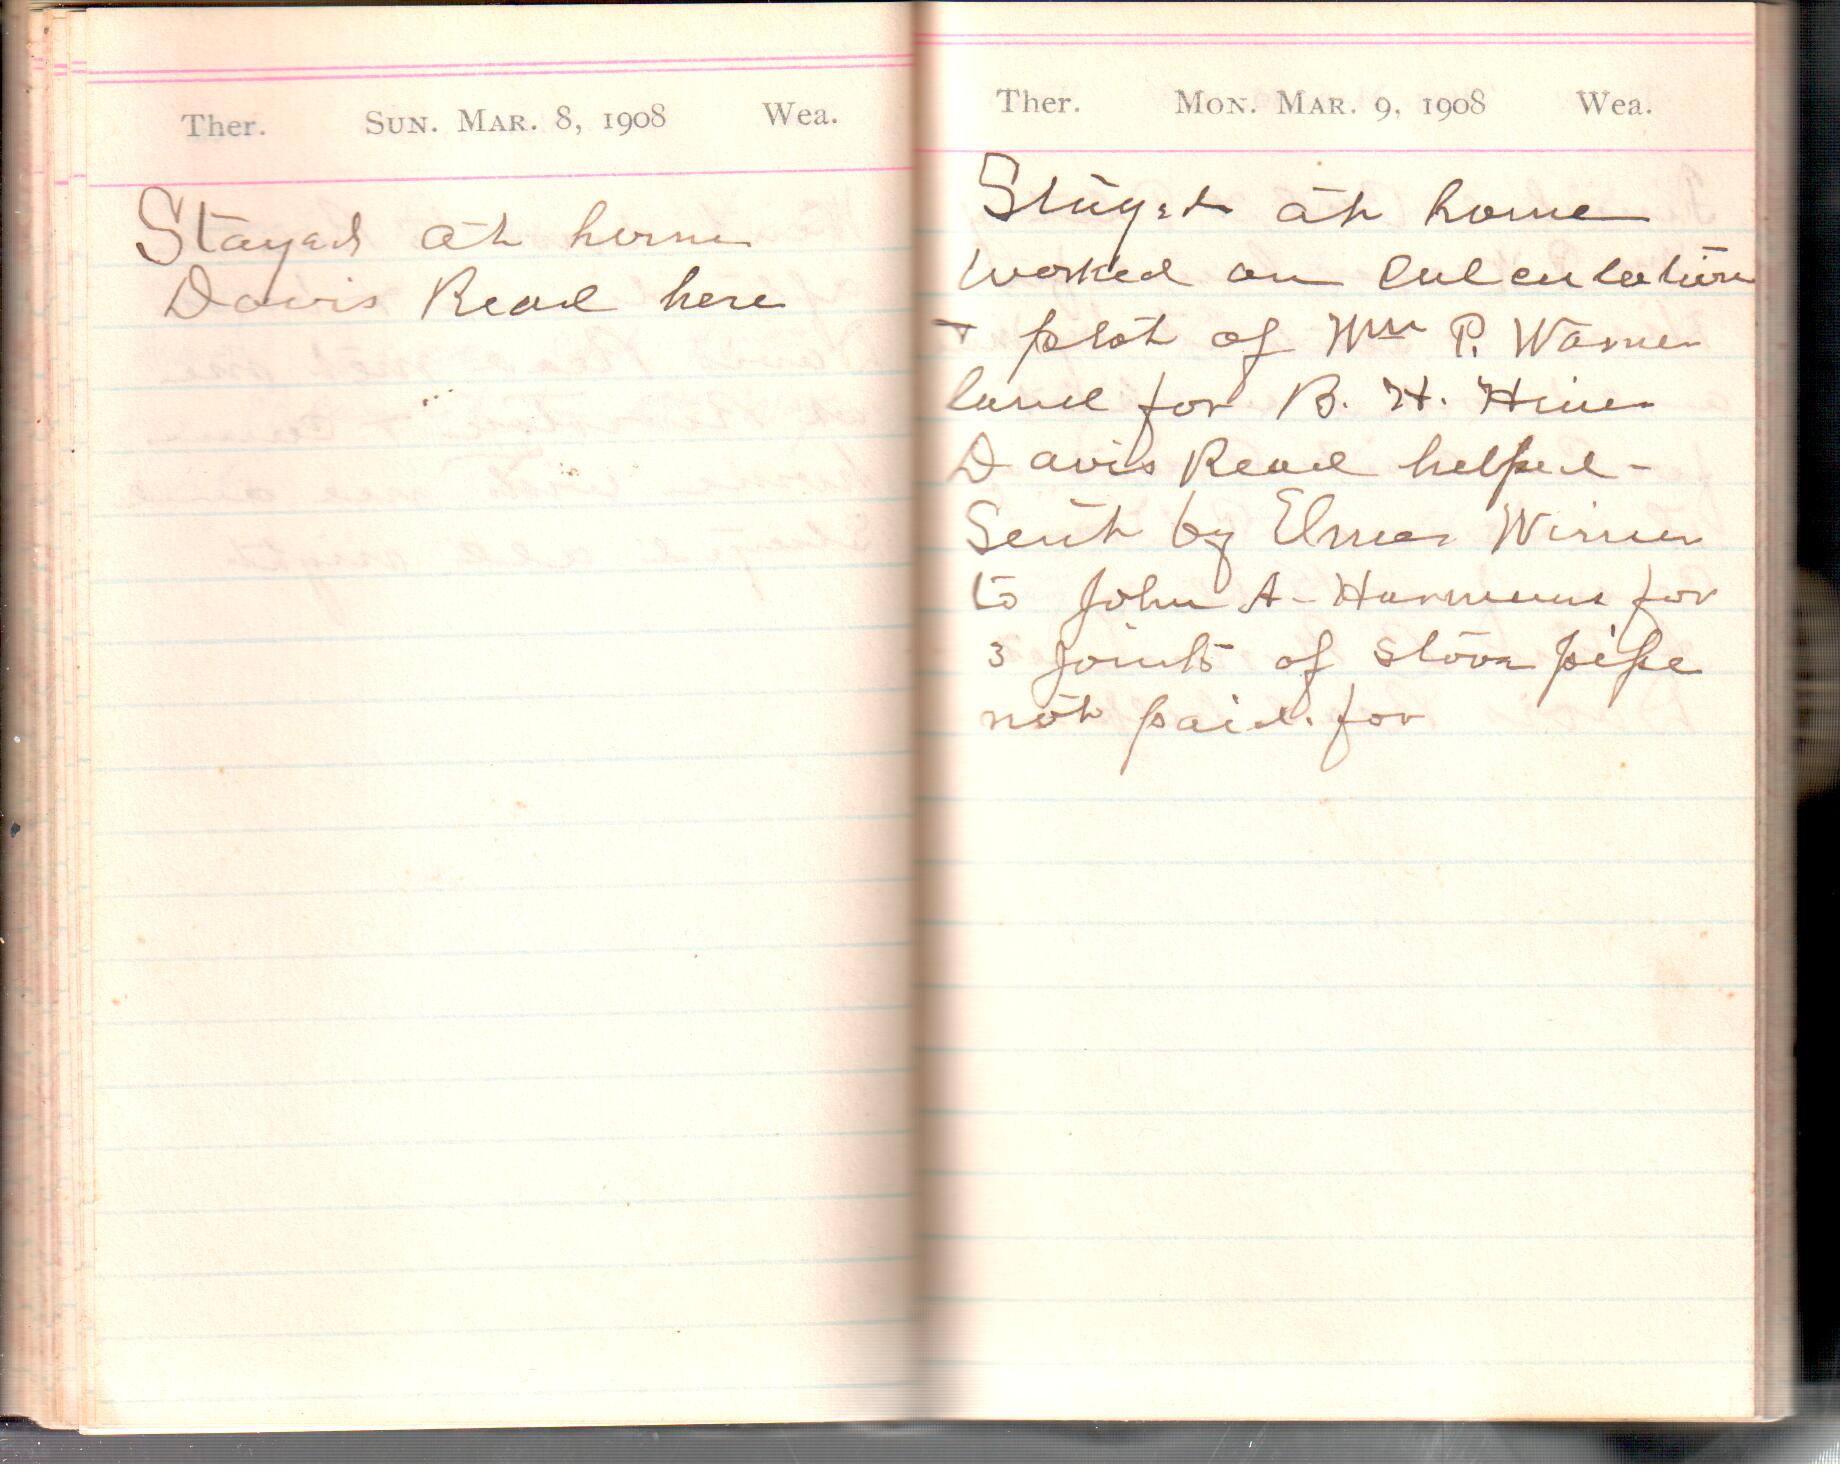 Ther. Sun. Mar. 8, 1908 Wea.
Stayed at home
Davis Read here
Ther. Mon. Mar. 9, 1908 Wea.
Stayed at home
Worked on calculation
+ plot of Wm P. Warner
land for B. H. Hiner
Davis Read helped -
Sent by Elmer
to John A. Harmans for
3 joints of stove pipe
not paid for